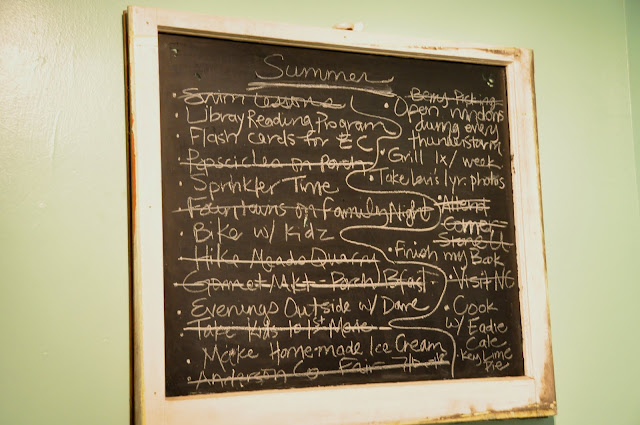 Summer
Swim Lessons
• Library Reading Program
• Flash cards for EC
Popscicles on Porch
• Sprinkler Time
Fountains on Family Night
• Bike w/ Kidz
Hike Meads Quarry
Gourmet Mkt - Porch Bfast
• Evenings Outside w/ Dave
Take Kids to 1st Movie
• Make Homemade Ice Cream
• Anderson Co. Fair
Berry Picking
• Open windows
during every
thunderstorm
• Grill 1x/week
• Take Levi's 1 yr. photos
Attend
Corner-
Stone U
• Finish my Book
• Visit NC
• Cook
w/ Eadie
Cate
• Key Lime
Pie